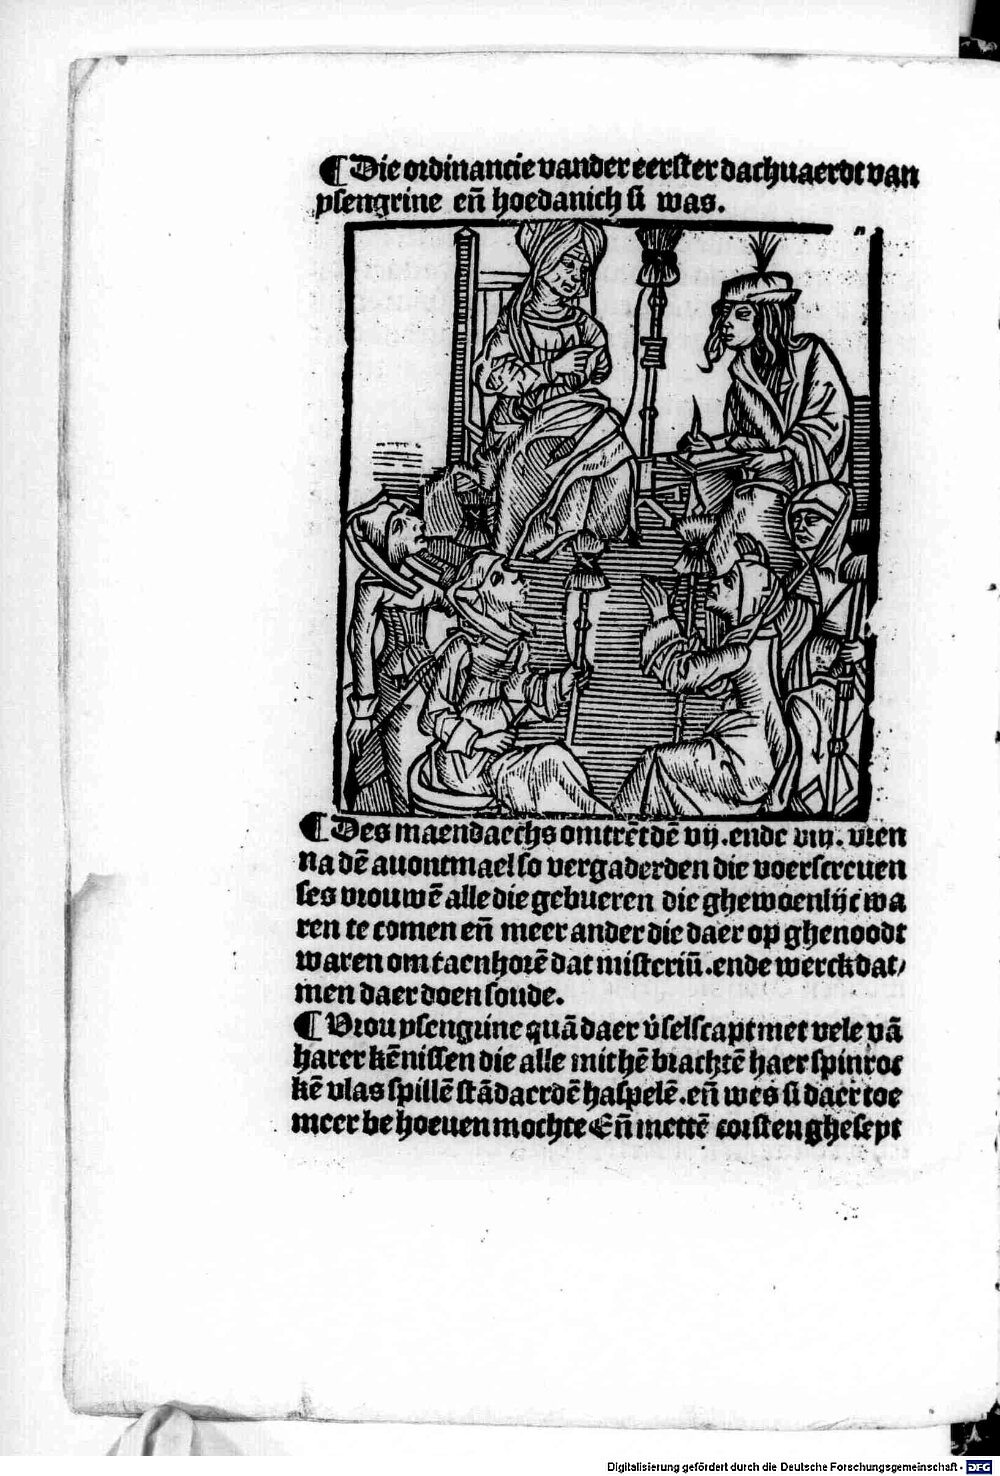 ¶ Die ordinancie vander eerster dachuaerdt van
ysengrine eñ hoedanich si was.
¶ Des maendaechs omtrēt dē vij. ende viij. vren
na dē auontmael so vergaderden die voerscreuen
ses vrouwē alle die gebueren die ghewoenlijc wa
ren te comen eñ meer ander die daer op ghenoodt
waren om taenhorē dat misteriū. ende werck dat/
men daer doen soude.
¶ Vrou ysengrine quā daer v̄selscapt met vele vā
harer kēnissen die alle mit hē brachtē haer spinroc
kē vlas spillē stādaerdē haspelē. eñ wes si daer toe
meer behoeuen mochte Eñ mettē corsten ghesept
Digitalisierung gefördert durch die Deutsche Forschungsgemeinschaft - DFG